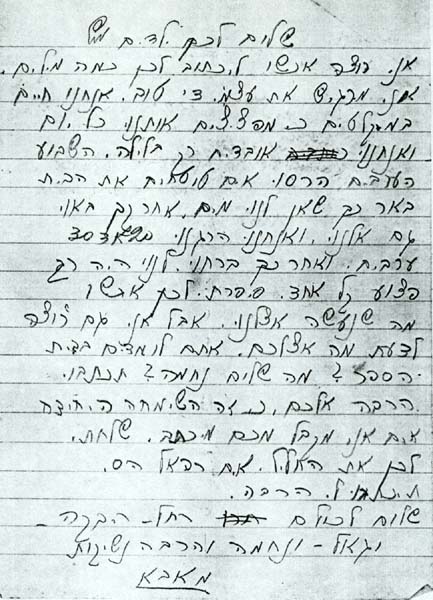 שלום לכם ילדים
אני רוצה אכשו לכתוב לכם כמה מילים.
אני מרגיש את עצמי די טוב. אנחנו חיים
במקלטים כי מפציצים אותנו כל יום
ואנחנו אובדים רק בלילה. השבוע
הערבים הרסו אם טוטחים את הבית
באר כך שאין לנו מים. אחר כך באו
גם אלנו. ואנחנו הרגנו 30
ערבים. ואחר כך ברחו. לנו היה רק
פצוע קל אחד. סיפרתי לכם אכשו
מה שנעשה אצלנו. אבל אני גם רוצה
לדעת מה אצלכם. אתם לומדים בבית
הספר? מה שלום נחמה? תכתבו
הרבה אלי, כי זה השימחה היחידה
אים אני מקבל מכם מיכתב. שלחתי
לכם את האליל. אים רפאל הס.
תיכתבו לי הרבה.
שלום לכולם רחל - רבקה -
יגאל - ונחמה והרבה נשיקות
מאבא